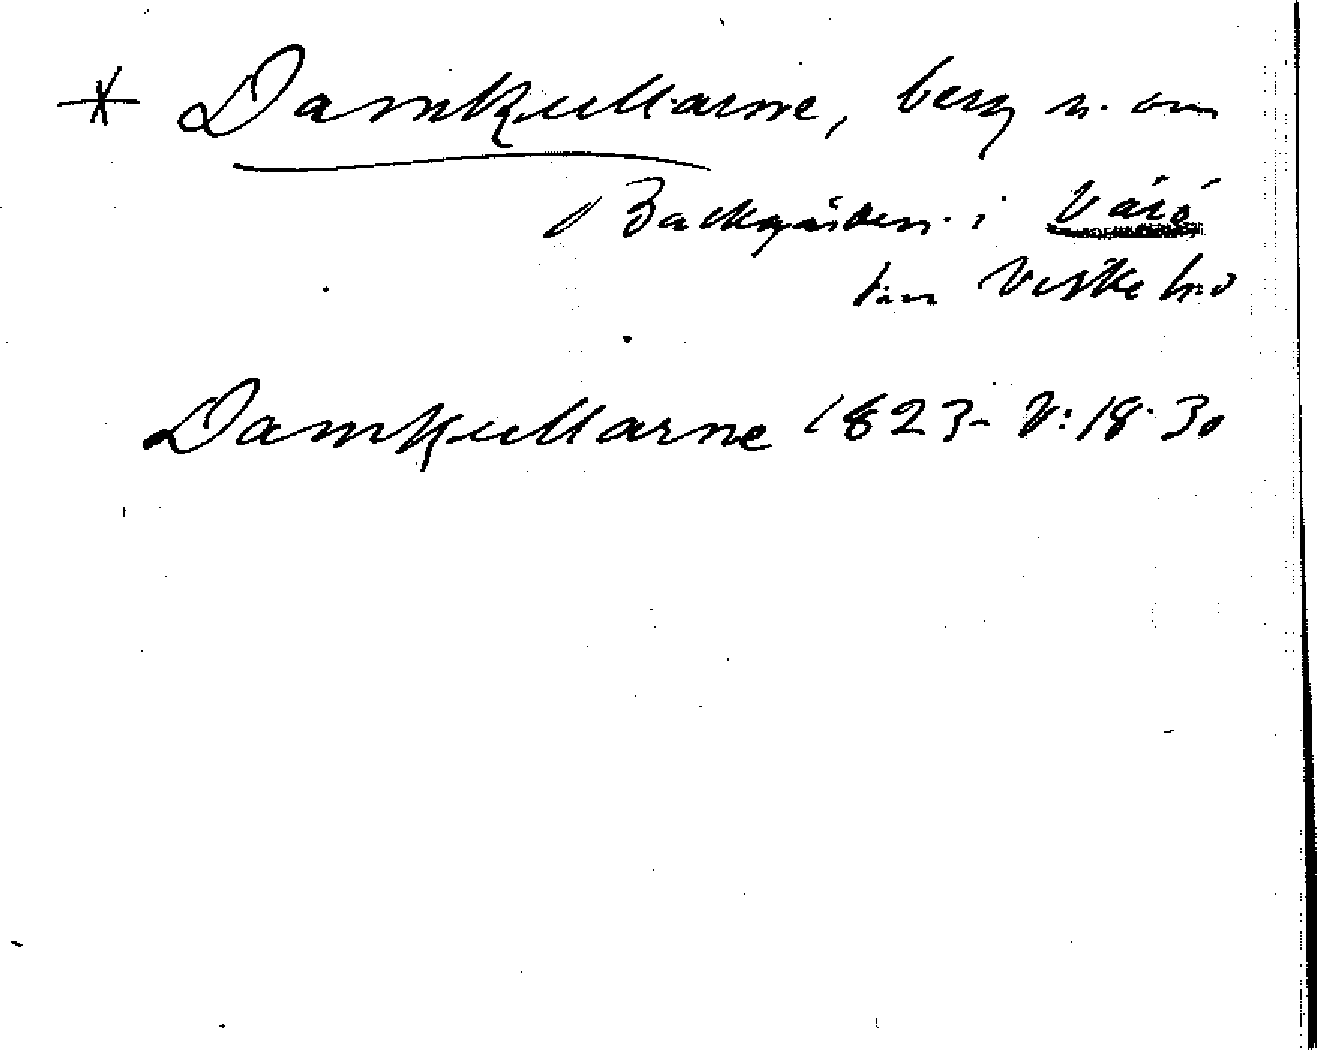 * Damkullarne, berg n. om
Backgården i Värö
sn Viske hd
Damkullarne 1823 V: 18. 30